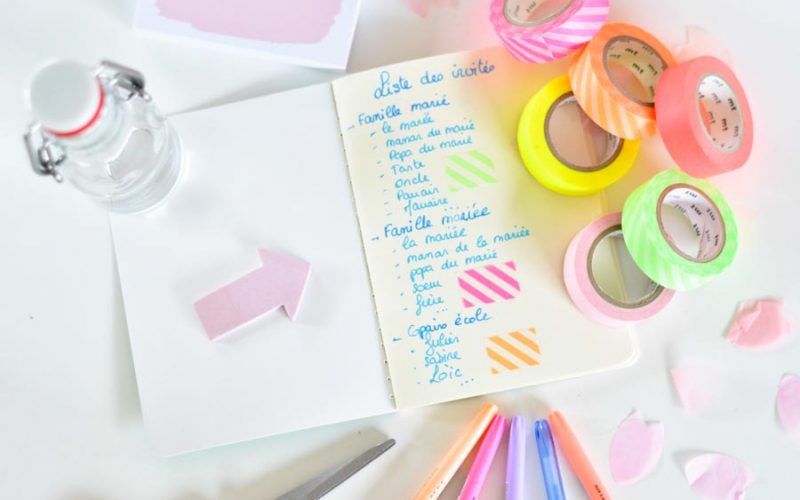 Liste des invités
- Famille marié
- le marié
- maman du marié
- Papa du marié
- Tante
- Oncle
- Parrain
- Marraine
- Famille mariée
- la mariée
- maman de la mariée
- papa du marié
- soeur
- frère ...
- Copains école
- Julien
- Sabine
- Loïc ...
mt
mt
mt
mt